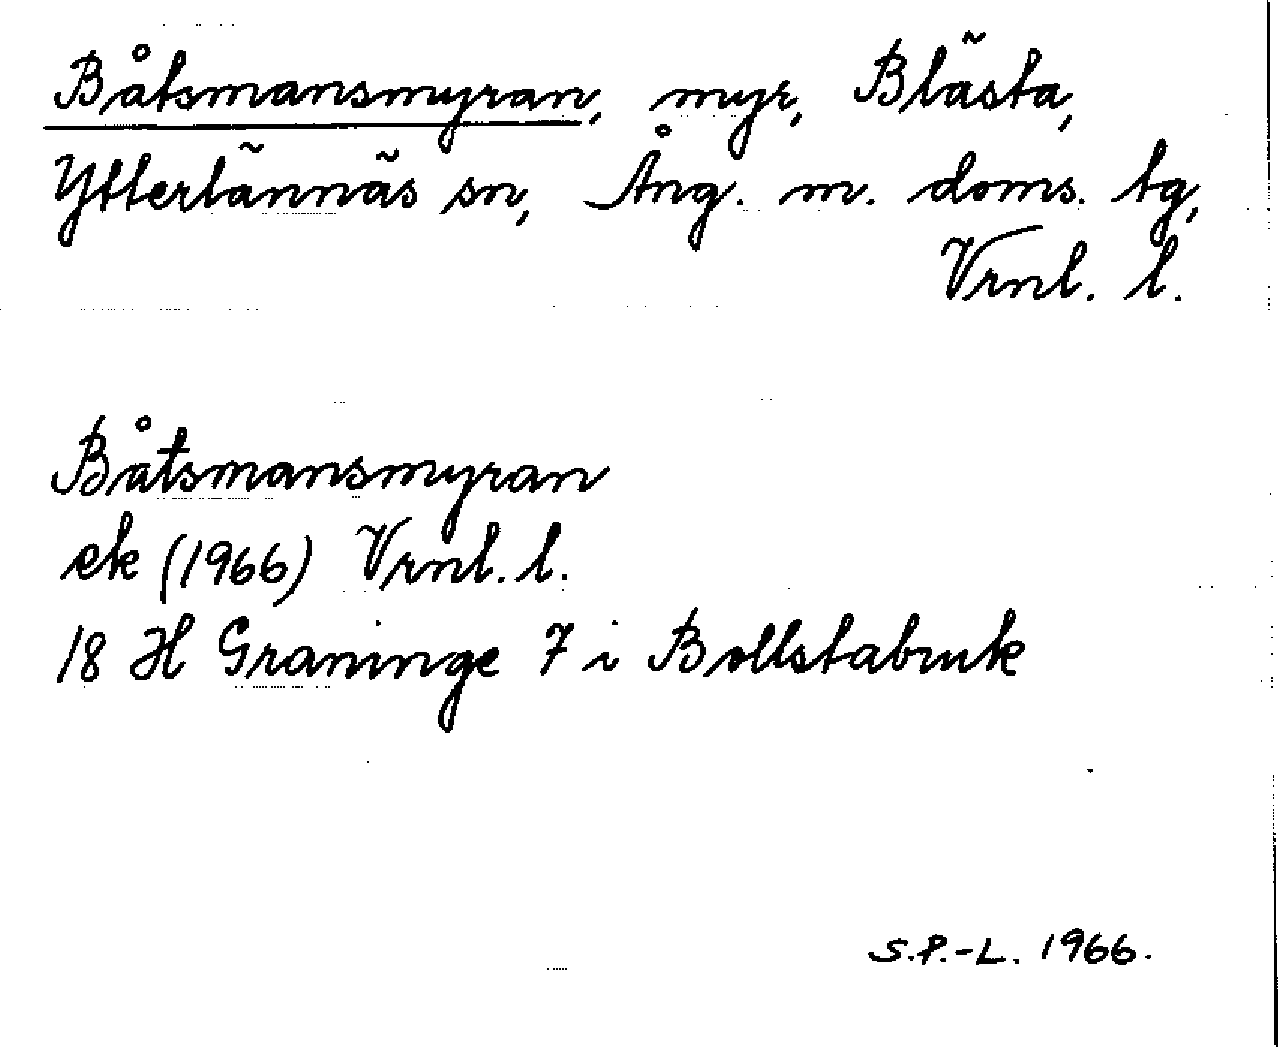 Båtsmansmyran, myr, Blästa,
Ytterlännäs sn, Ång. m. doms. tg,
Vrnl. l.
Båtsmansmyran
ek (1966) Vrnl. l.
18 H Graninge 7 i Bollstabruk
S.P.-L. 1966.